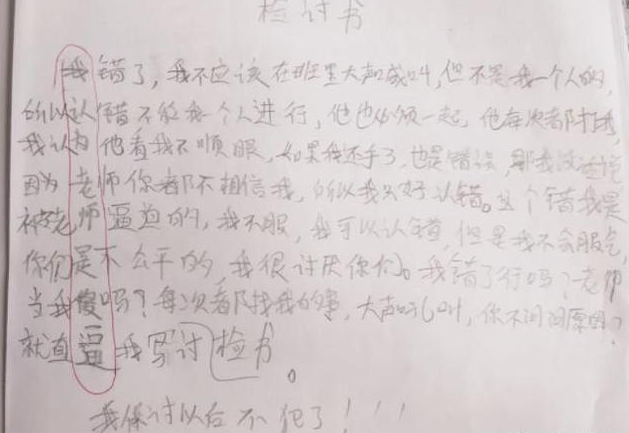 检讨书
我错了,我不应该在班里大声喊叫,但不是我一个人的,
所以认错不能我一个人进行,他也必须一起,他每次都打我,
我认为他看我不顺眼,如果我还手了,也是错误,那我没法说
因为老师你都不相信我,所以我只好认错。这个错我是
被老师逼迫的,我不服,我可以认错,但是我不会服气,
你们是不公平的,我很讨厌你们。我错了行吗?老师
当我傻吗?每次都找我的事,大声吼叫,你不问问原因?
就直逼我写讨检书。
我保讨以后不犯了!!!